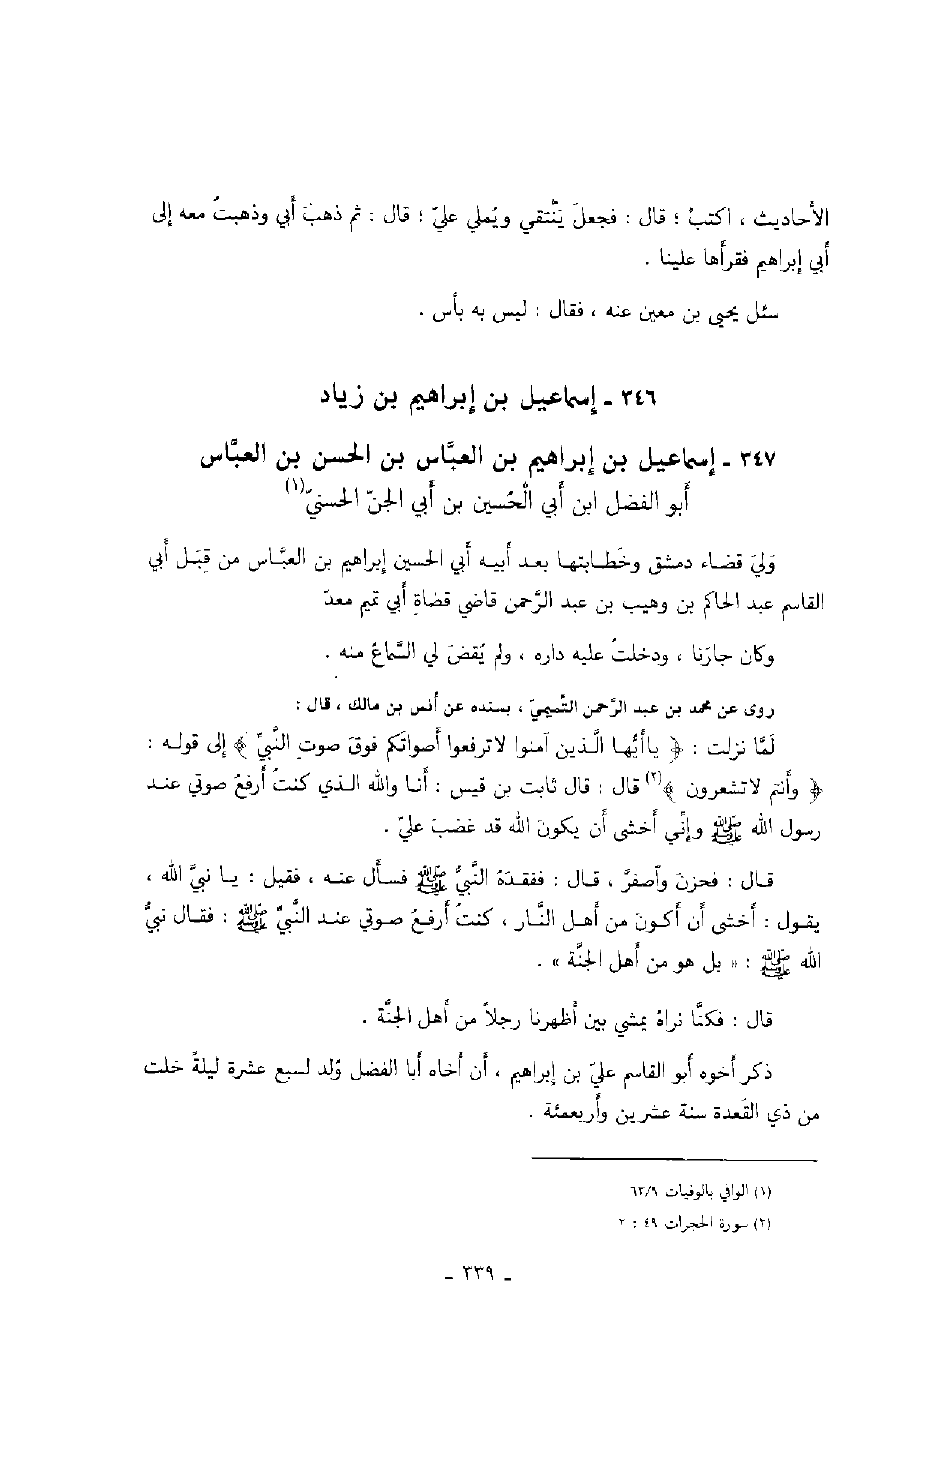 الأحاديث ، اكتبْ ؛ قال : فجعلَ يَنْتقي ويُملي عليّ ؛ قال : ثم ذهبَ أبي وذهبتُ معه إلى
أبي إبراهيم فقرأها علينا .
سئل يحيى بن معين عنه ، فقال : ليس به بأس .
٣٤٦ ـ إسماعيل بن إبراهيم بن زياد
٣٤٧ ـ إسماعيل بن إبراهيم بن العبَّاس بن الحسن بن العبَّاس
أبو الفضل ابن أبي الْحُسين بن أبي الجنّ الحسنيّ(١)
وَليَ قضاء دمشق وخَطابتها بعد أبيه أبي الحسين إبراهيم بن العبَّاس من قِبَل أبي
القاسم عبد الحاكم بن وهيب بن عبد الرَّحمن قاضي قضاةِ أبي تميم معدّ
وكان جارَنا ، ودخلتُ عليه داره ، ولم يُقضَ لي السَّماعُ منه .
روى عن محمد بن عبد الرَّحمن التَّميميّ ، بسنده عن أنس بن مالك ، قال :
لَمَّا نزلت : ﴿ ياأيُّها الَّذين آمنوا لاترفعوا أصواتَكم فوقَ صوتِ النَّبيّ ﴾ إلى قوله :
﴿ وأنتم لاتشعرون ﴾(٢) قال : قال ثابت بن قيس : أنا والله الذي كنتُ أرفعُ صوتي عند
رسول الله ﷺ وإنِّي أخشى أن يكونَ الله قد غضبَ عليّ .
قال : فحزنَ وآصفرَّ ، قال : ففقدَهُ النَّبيُّ ﷺ فسأل عنه ، فقيل : يا نبيَّ الله ،
يقول : أخشى أن أكونَ من أهل النَّار ، كنتُ أرفعُ صوتي عند النَّبيِّ ﷺ : فقال نبيُّ
الله ﷺ : « بل هو من أهل الجنَّة » .
قال : فكنَّا نراهُ يمشي بين أظهرنا رجلاً من أهل الجنَّة .
ذكر أخوه أبو القاسم عليّ بن إبراهيم ، أن أخاه أبا الفضل وُلد لسبع عشرة ليلةً خلت
من ذي القَعدة سنة عشرين وأربعمئة .
(١) الوافي بالوفيات ٦٣/٩
(٢) سورة الحجرات ٤٩ : ٢
ـ ٣٣٩ ـ